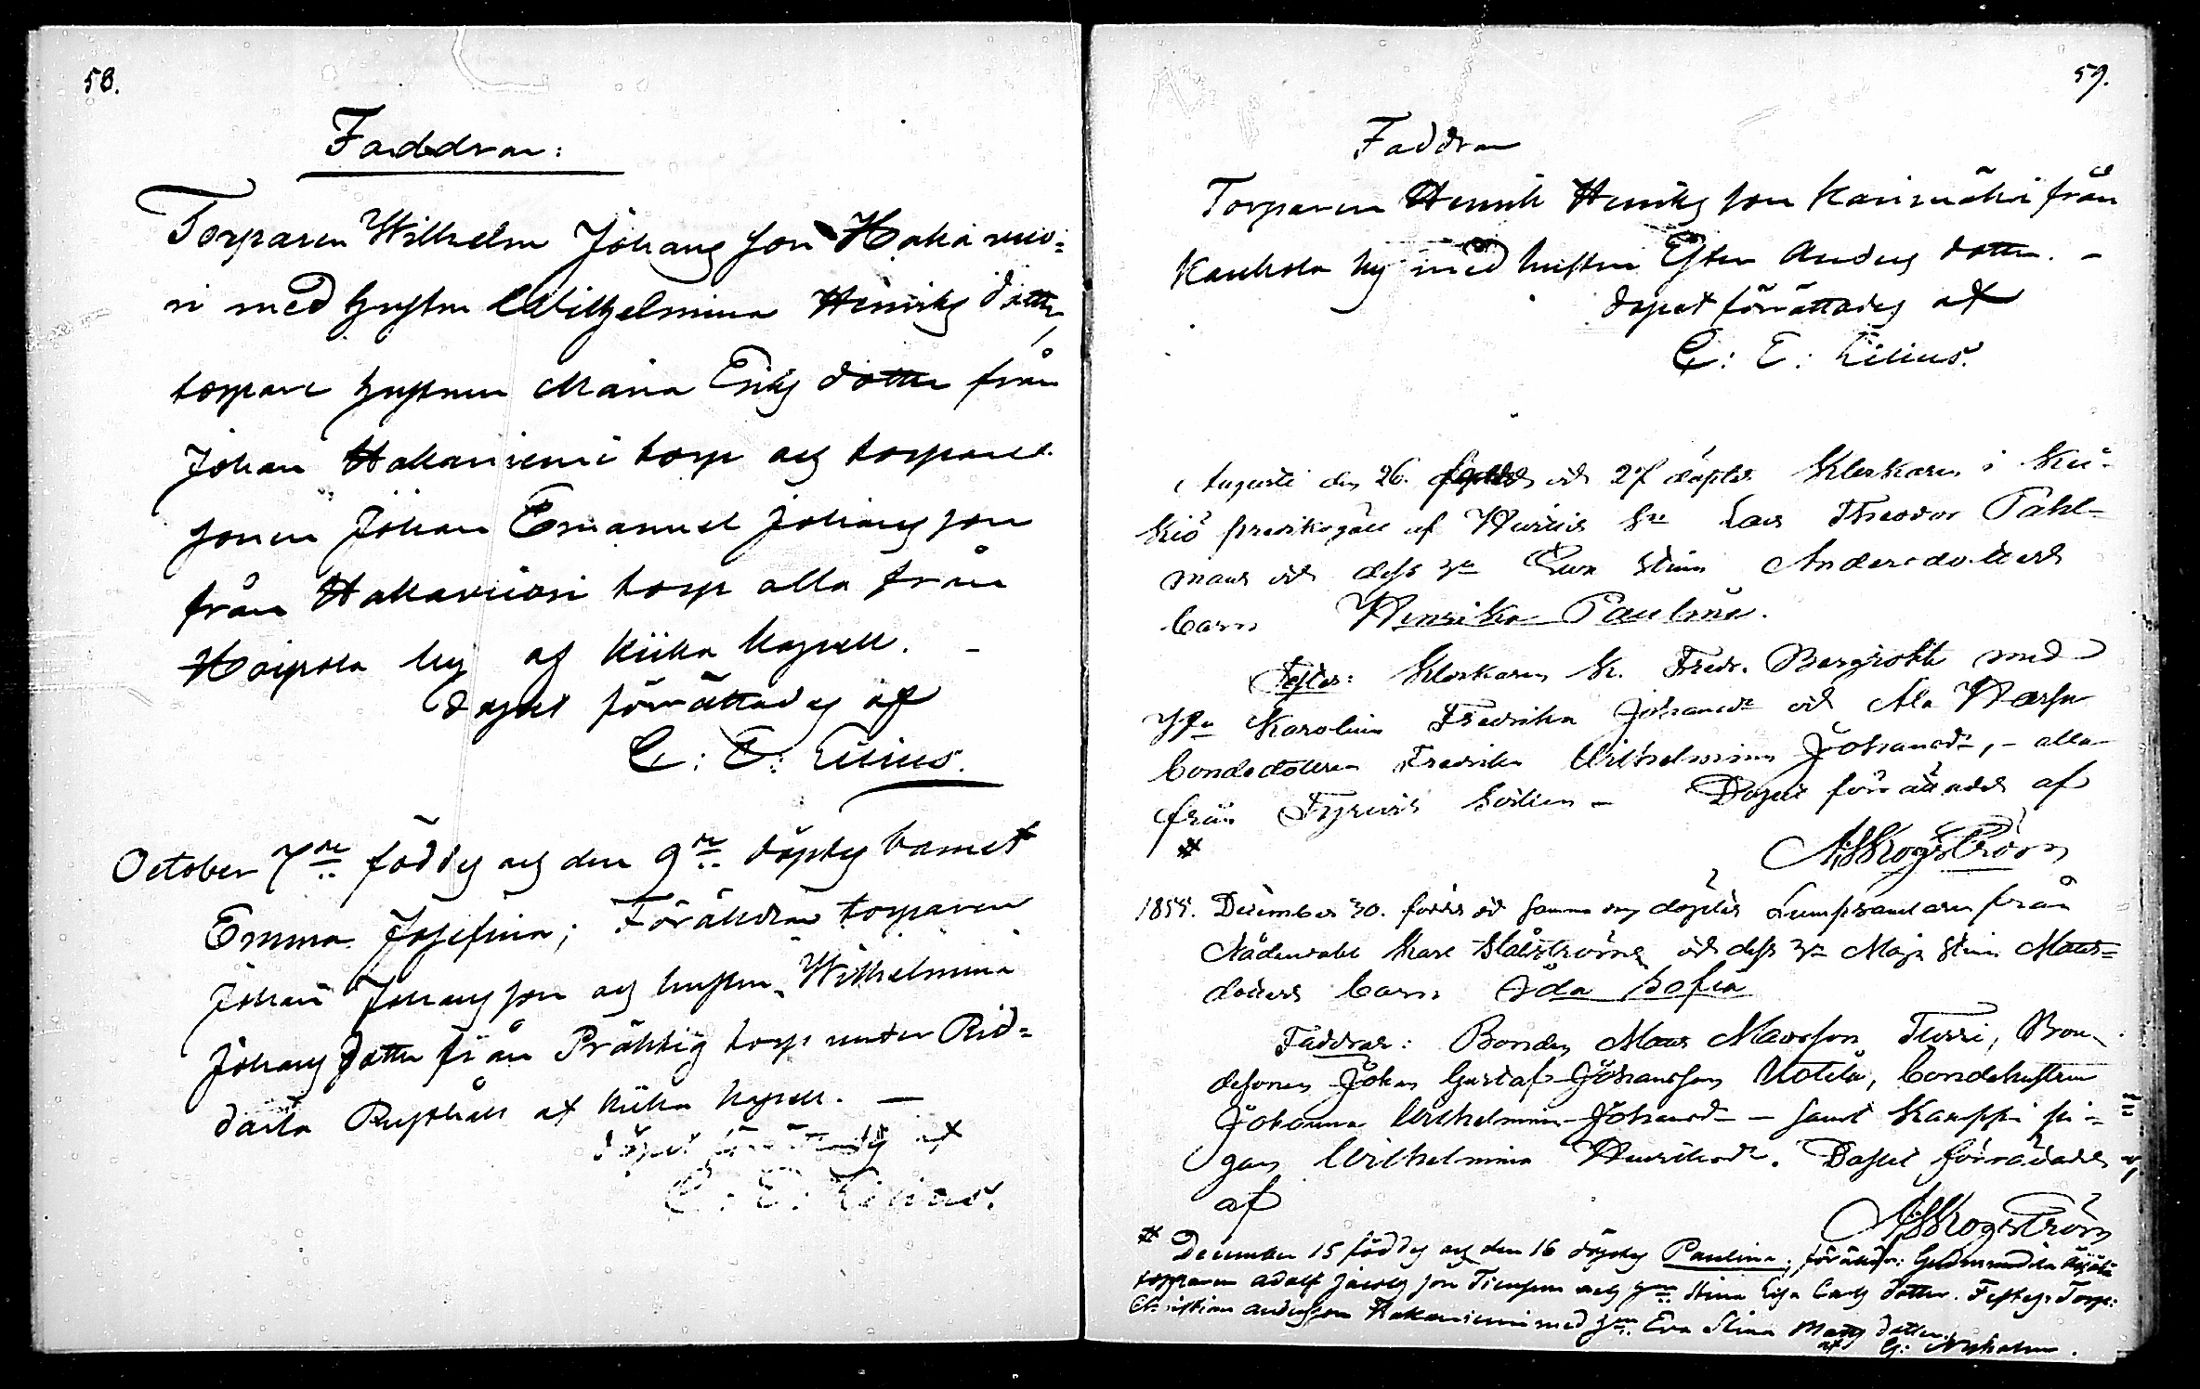 58.
Faddrar:
Torparen Wilhelm Johans son Hakavuo=
ri med hustru Wilhelmina Henriks dotter,
torpare hustrun Maria Eriks dotter från
Johan Hakaniemi torp och torpare
sonen Johan Emanuel Johans son
från Hakavuori torp alla från
Haipola by af Kiika kapell. –
dopet förrättades af
C: E: Lilius.
October 7de föddes och den 9de döptes barnet
Emma Josefina; Föräldrar torparen
Johan Johans son och hustru Wilhelmina
Johans dotter från Präktig torp under Rid=
dala Rusthåll af Kiika kapell. —
döpet förrättades af
C: E: Lilius.
59.
Faddrar
Torparen Henrik Henriks son Karimäki från
Kaukola by med hustru Ester Anders dotter. –
dopet förrättades af
C: E: Lilius.
Augusti den 26. föddes och 27 döptes Klockaren i Kii-
kis Theodor Påhl=
mans och dess hu Eva Stina Andersdotters
barn Henrika Paulina.
Testes: Klockaren K. Fredr. Bergroth med
hu Karolina Fredrika Johansdr och Ala
bondedottren Fredrika Wilhelmina Johansdr, – alla
från Tyrvis Socken – Dopet förrättades af
# A. Skogström
1855. December 30. föddes och samma dag döptes Lumpsamlaren från
Nådendal Karl Stålström och dess hu Maja Stina Mats=
dotters barn Ida Sofia
Faddrar: Bonden Mats Matsson Turri, Bon-
desonen Johan Gustaf Johansson Uotila, bondehustrun
Johanna Wilhelmina Johansdr – samt Kamppi pi-
gan Wilhelmina Henriksdr. Dopet förrättades
af
A. Skogström
# December 15 föddes och den 16 döptes Paulina; föräldr:
torparen Adolf Jacobs son och hu Stina Lisa Carls dotter. Testes: Torp:
Christian Andersson Hakaniemi med hu Eva Stina Matts dotter.
af G: Nyholm.